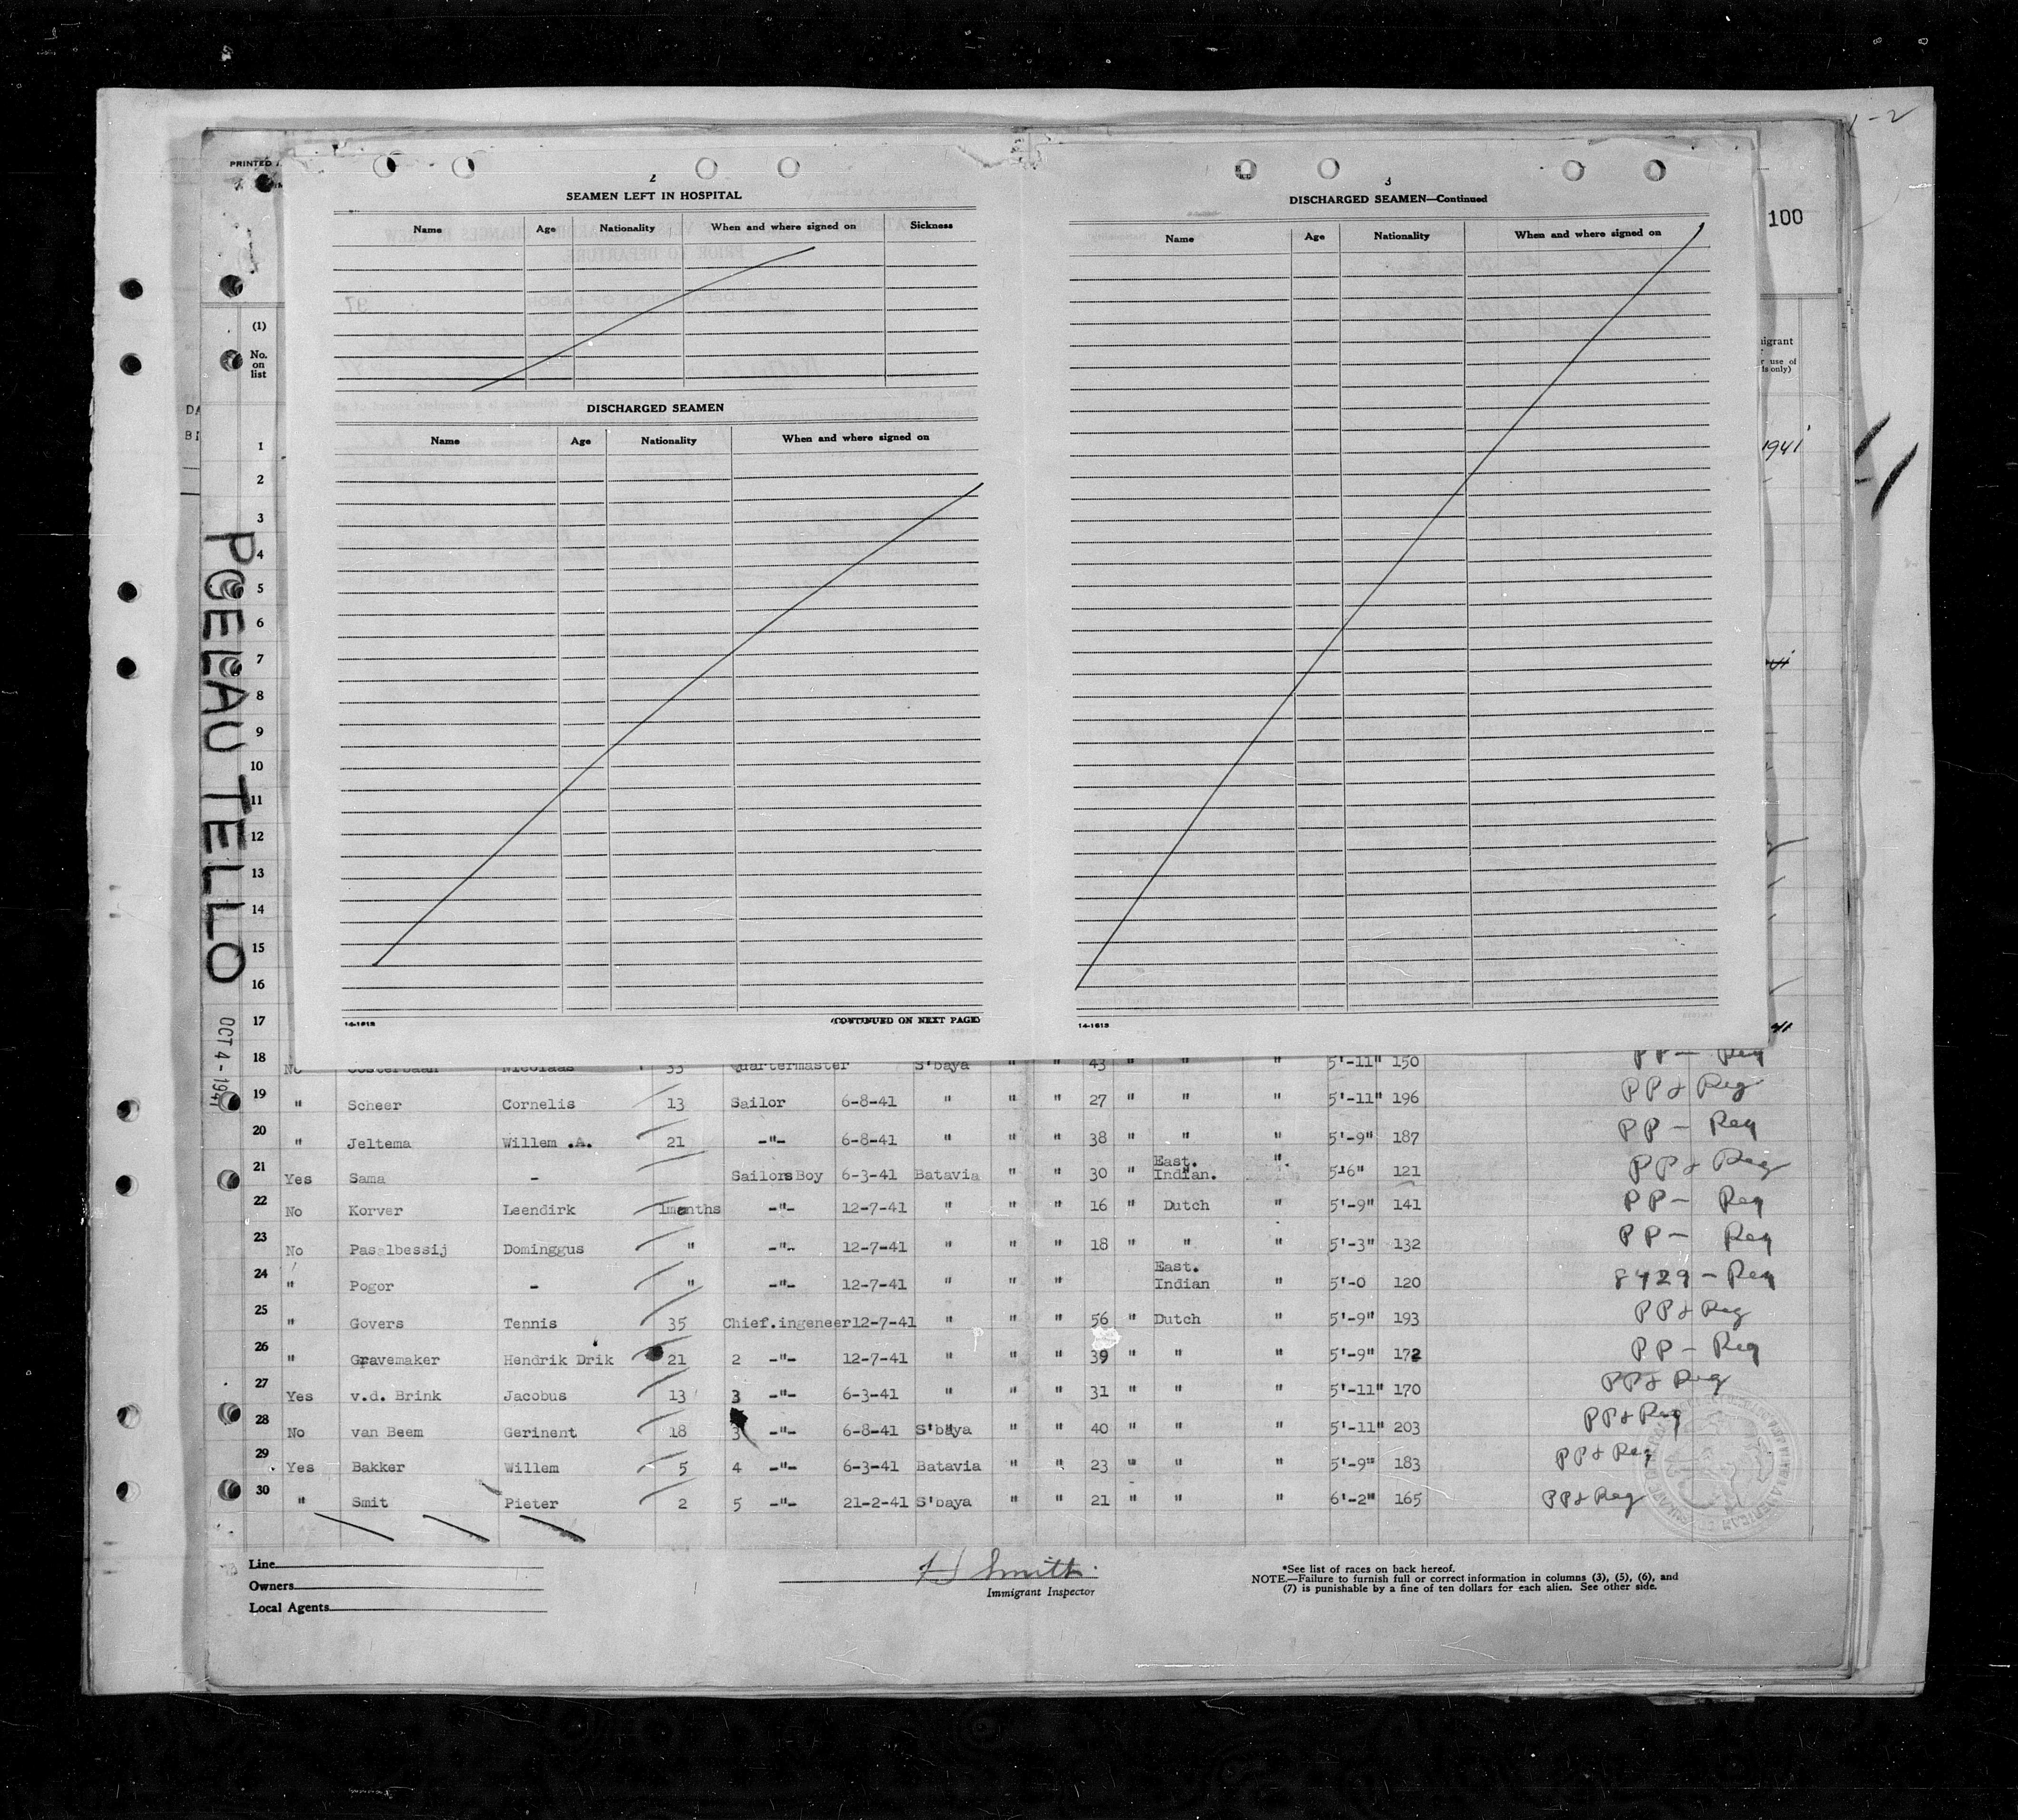 1-2
PRINTED
2
SEAMEN LEFT IN HOSPITAL
Name Age Nationality When and where signed on Sickness
DISCHARGED SEAMEN
Name Age Nationality When and where signed on
14-1613 (CONTINUED ON NEXT PAGE)
3
DISCHARGED SEAMEN—Continued
Name Age Nationality When and where signed on
14-1613
100
(1)
No.
on
list
migrant
r use of
ls only)
1941
POELAU TELLO
OCT 4 - 1941
1
2
3
4
5
6
7
8
9
10
11
12
13
14
15
16
17
18 No Oosterbaan Nicolaas 33 Quartermaster S'baya " " 43 " " " 5'-11" 150 PP - Req
19 " Scheer Cornelis 13 Sailor 6-8-41 " " " 27 " " " 5'-11" 196 PP & Req
20 " Jeltema Willem .A. 21 -"- 6-8-41 " " " 38 " " " 5'-9" 187 PP - Req
21 Yes Sama - Sailors Boy 6-3-41 Batavia " " 30 " East. Indian. " 5'-6" 121 PP & Req
22 No Korver Leendirk 1months -"- 12-7-41 " " " 16 " Dutch " 5'-9" 141 PP - Req
23 No Pasalbessij Dominggus " -"- 12-7-41 " " " 18 " " " 5'-3" 132 PP - Req
24 " Pogor - " -"- 12-7-41 " " " East. Indian " 5'-0 120 8429 - Req
25 " Govers Tennis 35 Chief.ingeneer 12-7-41 " " " 56 " Dutch " 5'-9" 193 PP & Req
26 " Gravemaker Hendrik Drik 21 2 -"- 12-7-41 " " " 39 " " " 5'-9" 172 PP - Req
27 Yes v.d. Brink Jacobus 13 3 -"- 6-3-41 " " " 31 " " " 5'-11" 170 PP & Req
28 No van Beem Gerinent 18 3 -"- 6-8-41 S'baya " " 40 " " " 5'-11" 203 PP & Req
29 Yes Bakker Willem 5 4 -"- 6-3-41 Batavia " " 23 " " " 5'-9" 183 PP & Req
30 " Smit Pieter 2 5 -"- 21-2-41 S'baya " " 21 " " " 6'-2" 165 PP & Req
Line
Owners
Local Agents
H Smith
Immigrant Inspector
*See list of races on back hereof.
NOTE.—Failure to furnish full or correct information in columns (3), (5), (6), and
(7) is punishable by a fine of ten dollars for each alien. See other side.